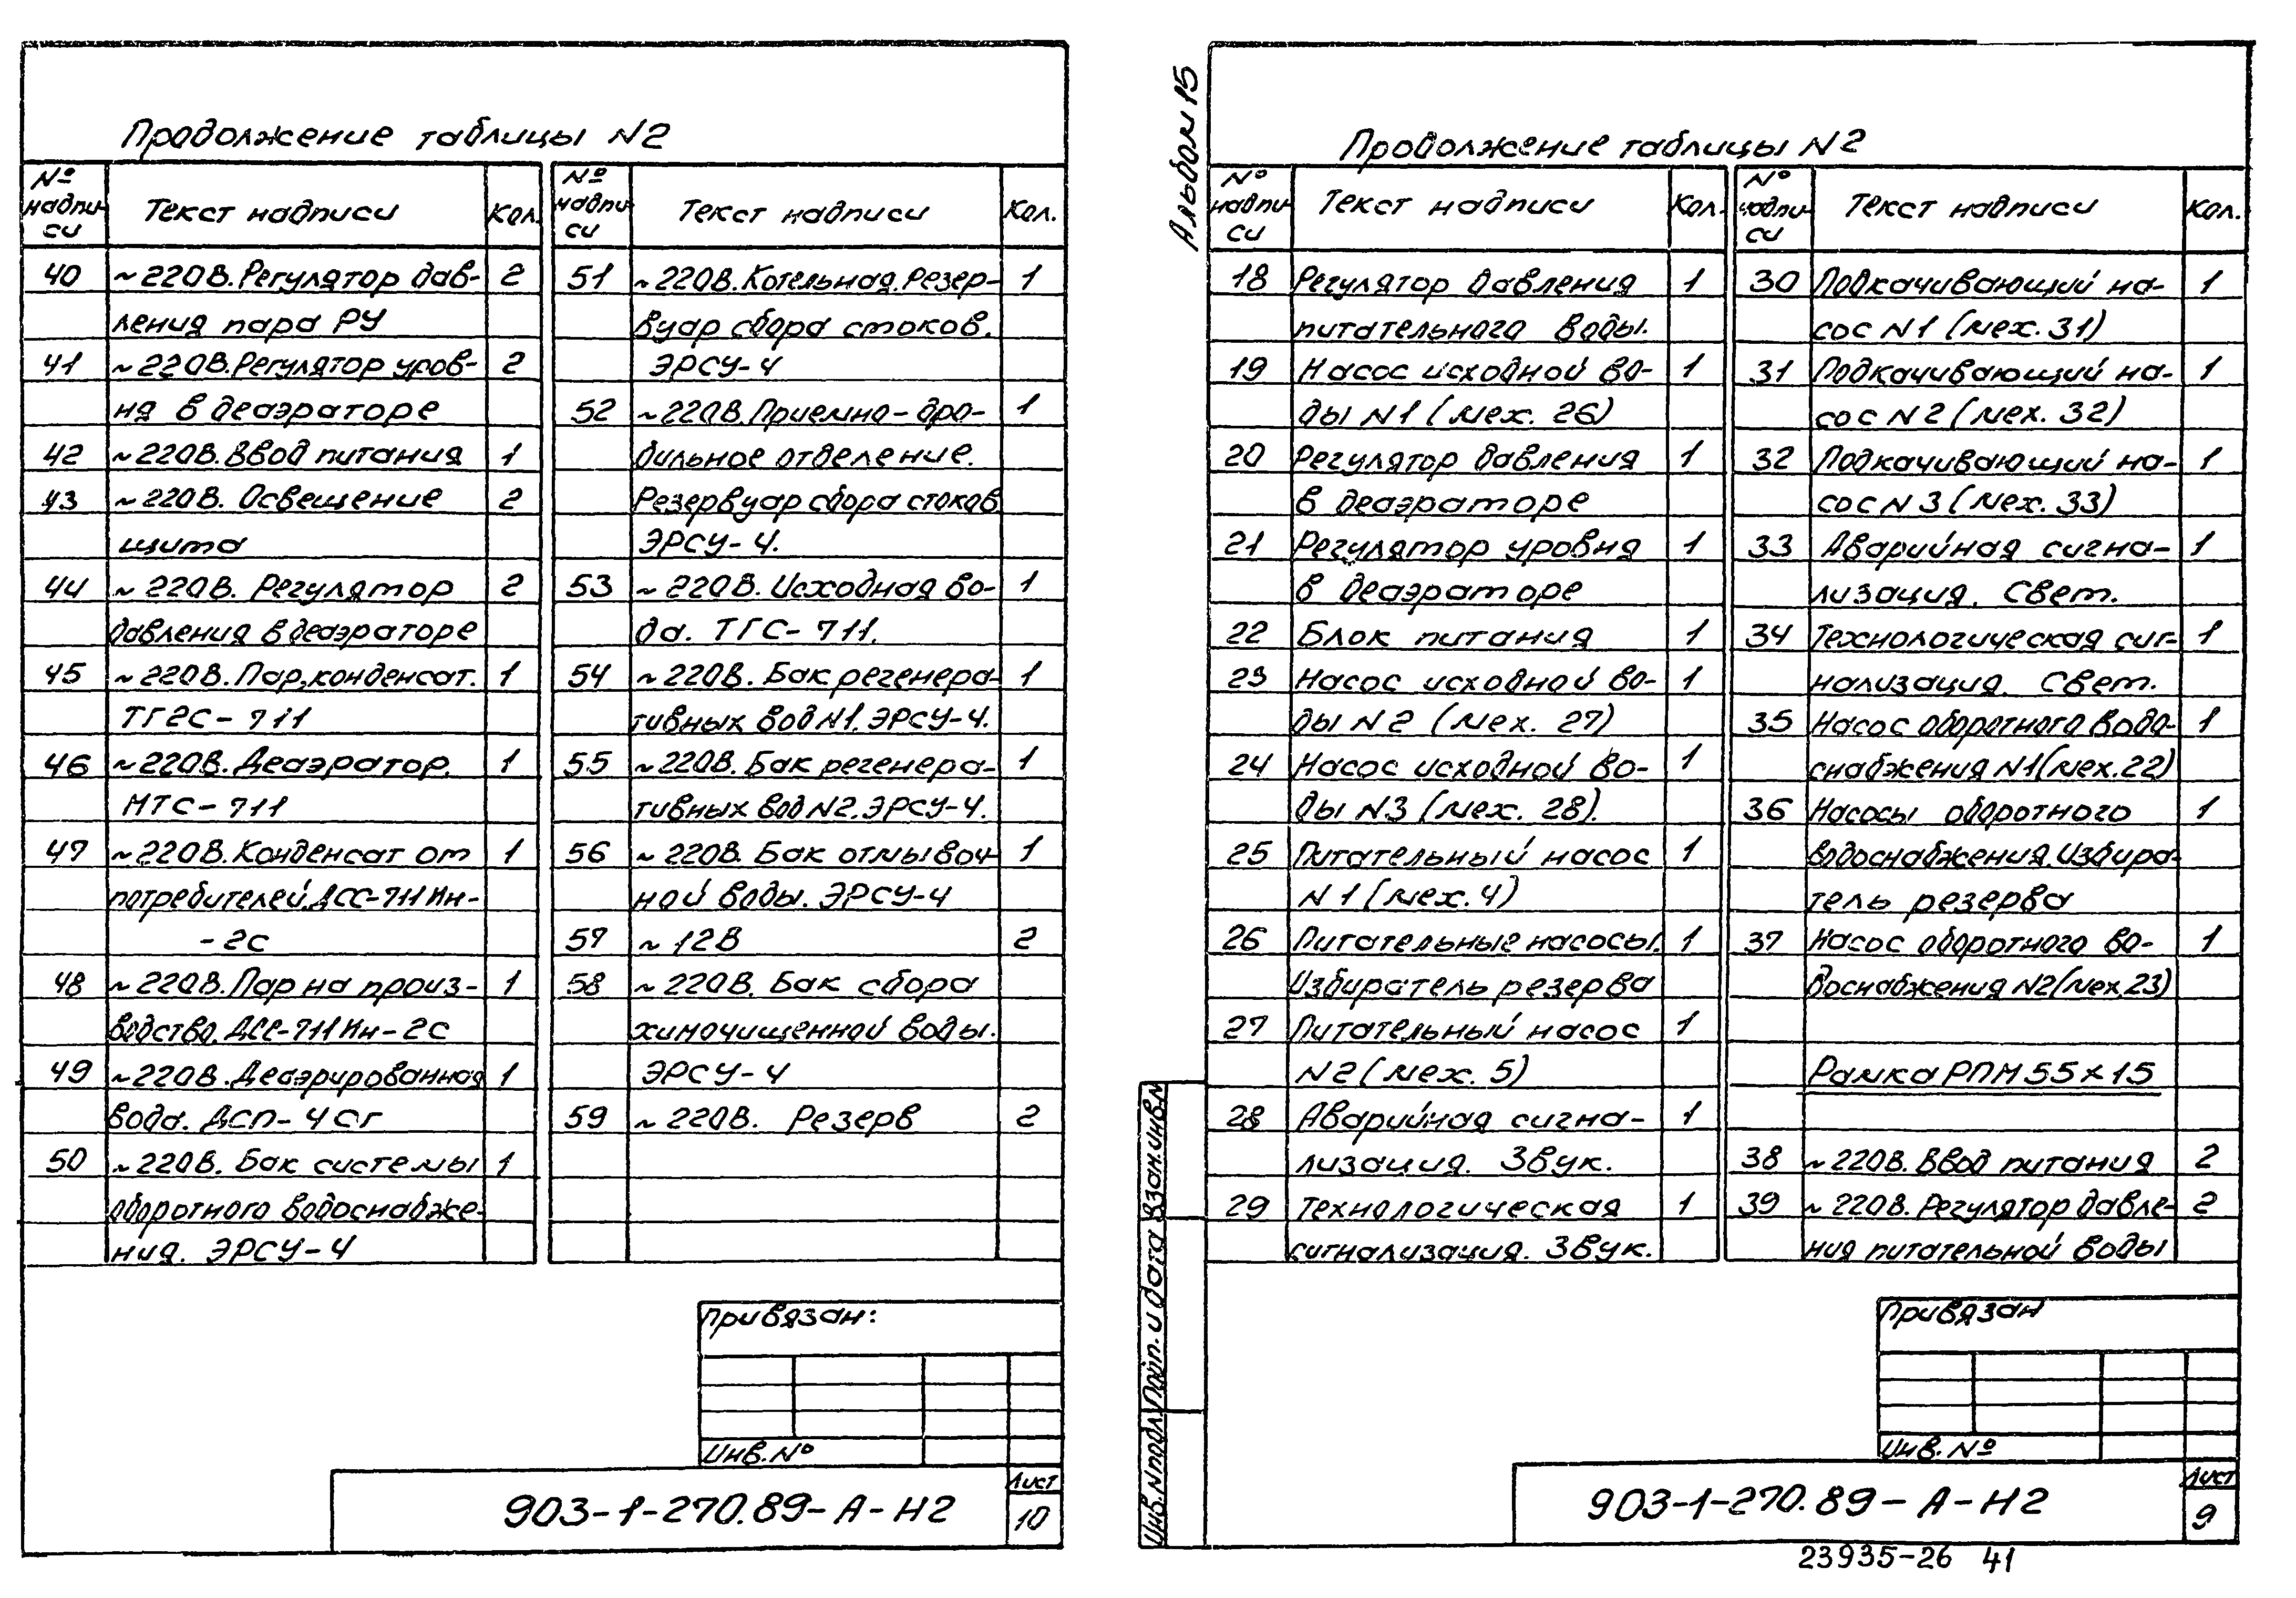 Продолжение таблицы N2
№ надпи- си Текст надписи Кол.
40 ~220В. Регулятор дав- 2
ления пара РУ
41 ~220В. Регулятор уров- 2
ня в деаэраторе
42 ~220В. Ввод питания 1
43 ~220В. Освещение 2
щита
44 ~220В. Регулятор 2
давления в деаэраторе
45 ~220В. Пар, конденсат. 1
ТГ2С-711
46 ~220В. Деаэратор. 1
МТС-711
47 ~220В. Конденсат от 1
потребителей. ДСС-711Ин-
-2С
48 ~220В. Пар на произ- 1
водство. ДСС-711Ин-2С
49 ~220В. Деаэрированная 1
вода. ДСП-4Сг
50 ~220В. Бак системы 1
оборотного водоснабже-
ния. ЭРСУ-4
№ надпи- си Текст надписи Кол.
51 ~220В. Котельная. Резер- 1
вуар сбора стоков.
ЭРСУ-4
52 ~220В. Приемно-дро- 1
бильное отделение.
Резервуар сбора стоков
ЭРСУ-4.
53 ~220В. Исходная во- 1
да. ТГС-711.
54 ~220В. Бак регенера- 1
тивных вод N1. ЭРСУ-4.
55 ~220В. Бак регенера- 1
тивных вод N2. ЭРСУ-4.
56 ~220В. Бак отмывоч- 1
ной воды. ЭРСУ-4
57 ~12В 2
58 ~220В. Бак сбора
химочищенной воды.
ЭРСУ-4
59 ~220В. Резерв 2
Привязан:
Инв. №
903-1-270.89-А-Н2
Лист
10
Альбом 15
Продолжение таблицы N2
№ надпи- си Текст надписи Кол.
18 Регулятор давления 1
питательного воды.
19 Насос исходной во- 1
ды N1 (мех. 26)
20 Регулятор давления 1
в деаэраторе
21 Регулятор уровня 1
в деаэраторе
22 Блок питания 1
23 Насос исходной во- 1
ды N2 (мех. 27)
24 Насос исходной во- 1
ды N3 (мех. 28).
25 Питательный насос 1
N1 (мех. 4)
26 Питательные насосы. 1
Избиратель резерва
27 Питательный насос 1
N2 (мех. 5)
28 Аварийная сигна- 1
лизация. Звук.
29 Технологическая 1
сигнализация. Звук.
№ надпи- си Текст надписи Кол.
30 Подкачивающий на- 1
сос N1 (мех. 31)
31 Подкачивающий на- 1
сос N2 (мех. 32)
32 Подкачивающий на- 1
сос N3 (мех. 33)
33 Аварийная сигна- 1
лизация. Свет.
34 Технологическая сиг- 1
нализация. Свет.
35 Насос оборотного водо- 1
снабжения N1 (мех. 22)
36 Насосы оборотного 1
водоснабжения. Избира-
тель резерва
37 Насос оборотного во- 1
доснабжения N2 (мех. 23)
Рамка РПМ 55×15
38 ~220В. Ввод питания 2
39 ~220В. Регулятор давле- 2
ния питательной воды
Привязан
Инв. №
903-1-270.89-А-Н2
Лист
9
Инв. N подл. Подп. и дата Взам. инв. N
23935-26 41